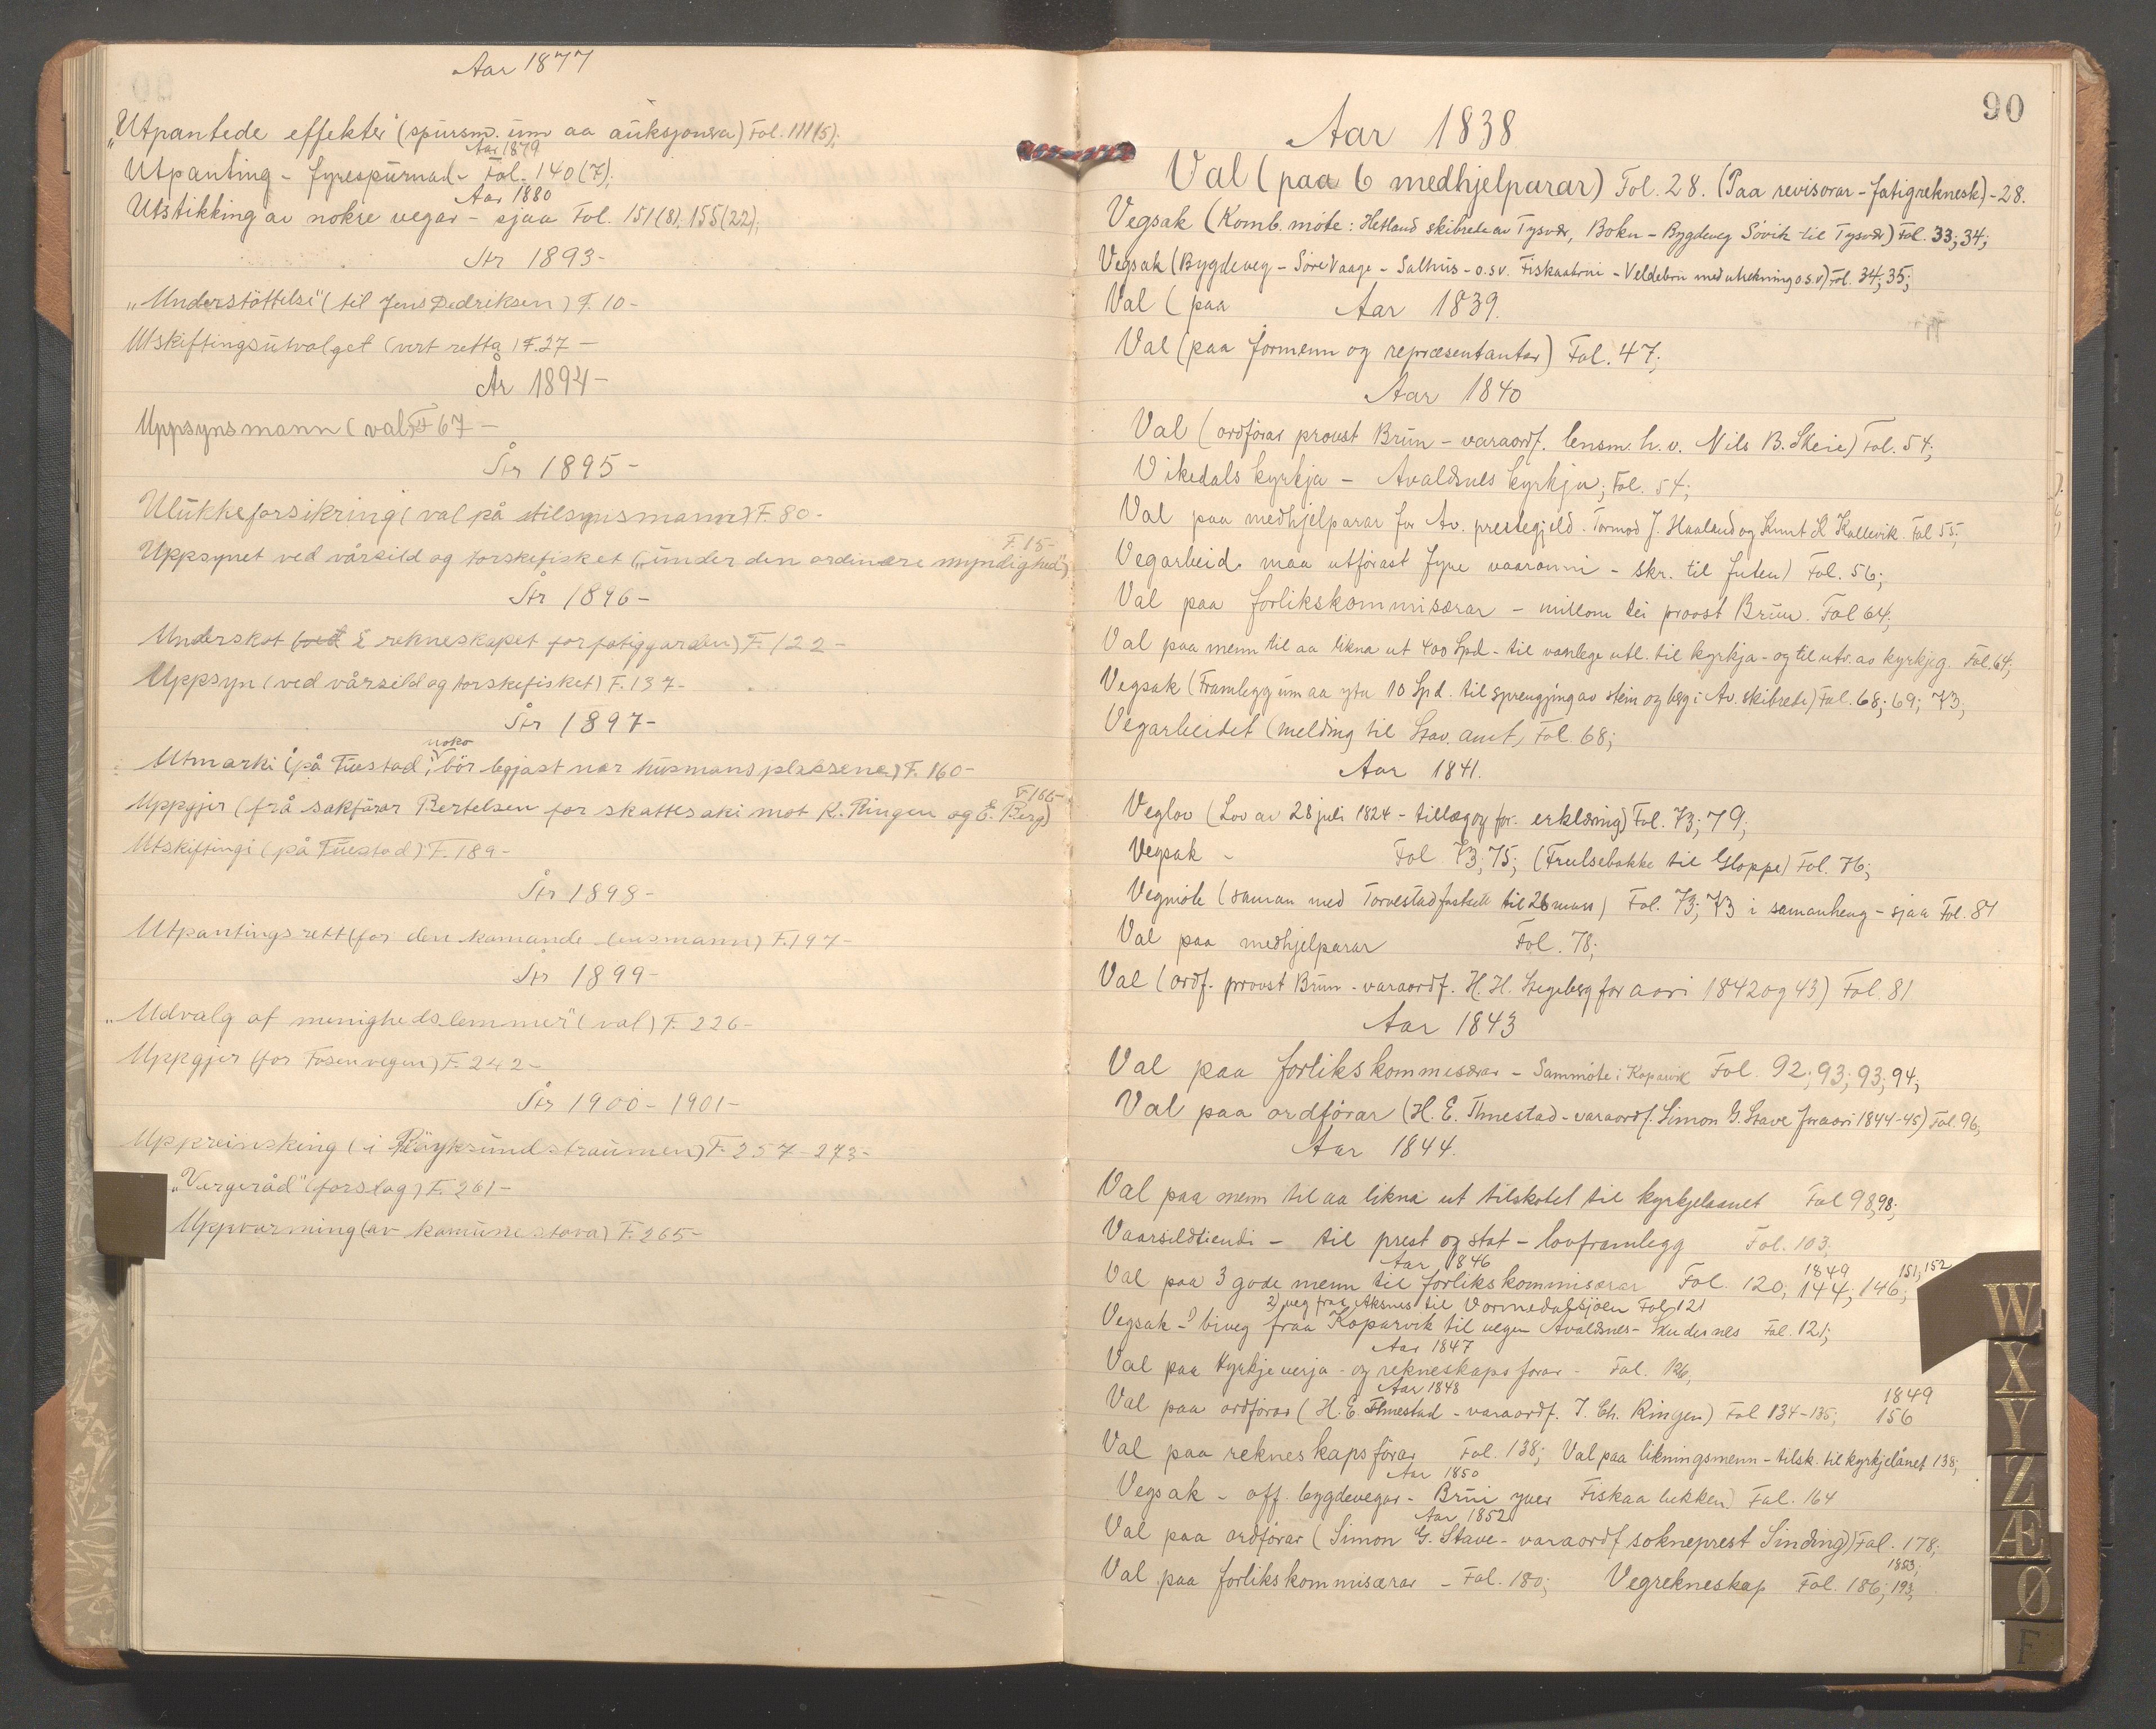 Aar 1877
"Utpantede effekter" (spursm. um aa auksjonera) Fol. 111(5);
Aar 1879
Utpanting - fyrespurnad - Fol. 140(7);
Aar 1880
Utstikking av nokre vegar - sjaa Fol. 151(8), 155(22);
År 1893-
"Understöttelse" (til Jens Dedriksen) F. 10-
Utskiftingsutvalget (vert retta) F. 27-
År 1894-
Uppsynsmann (val) F 67-
År 1895-
Ulukkeforsikring (val på tilsynsmann) F. 80-
F. 15-
Uppsynet ved vårsild og torskefisket ("under den ordinære myndighed")
År 1896-
Underskot i rekneskapet for fatiggarden) F. 122-
Uppsyn (ved vårsild og torskefisket) F. 137-
År 1897-
noko
Utmarki (på Tuestad, bör legjast nær husmansplassene) F. 160-
F 166-
Uppgjer (frå sakförar Bertelsen for skattesaki mot K. Ringen og E. Berg)
Utskiftingi (på Tuestad) F. 189-
År 1898-
Utpantingsrett (for den kamunde lensmann) F. 197-
År 1899-
"Udvalg af menighedslemmer" (val) F. 226-
Uppgjer (for Fosenvegen) F. 242-
År 1900-1901-
Uppreinsking (i Röyksundstraumen) F. 257-273-
"Vergeråd" (forslag) F. 261-
Uppvarming (av kamunestova) F. 265-
90
Aar 1838
Val (paa 6 medhjelparar) Fol. 28. (Paa revisorar - fatigreknesk)-28.
Vegsak (Komb. möte: Hetland skibrede av Tysvær, Bokn - Bygdeveg Sövik til Tysvær) Fol. 33; 34;
Vegsak (Bygdeveg - Söre Vaage - Salhus - o.s.v. Fiskaabrui - Veldebru med utrekning o.s.v) Fol. 34; 35;
Val (paa
Aar 1839.
Val (paa formenn og repræsentantar) Fol. 47;
Aar 1840
Val (ordförar proust Brun - varaordf. lensm. h. v. Nils B. Skeie) Fol. 54;
Vikedals kyrkja - Avaldsnes kyrkja; Fol. 54;
Val paa medhjelparar for Av. prestegjeld. Tormod J. Haaland og Knut L Kallevik. Fol 55;
Vegarbeid maa utförast fyre vaaronni - skr. til futen) Fol. 56;
Val paa forlikskommisærar - millom dei proost Brun. Fol 64;
Val paa menn til aa likna ut 400 Spd - til vanlege utl. til kyrkja - og til utv. av kyrkjeg. Fol. 64;
Vegsak (Framlegg um aa yta 10 Spd. til sprengjing av stein og berg i Av. skibrede) Fol. 68; 69; 73;
Vegarbeidet (melding til Stav. amt, Fol. 68;
Aar 1841.
Veglov (Lov av 28 juli 1824 - tillægg for. erklæring) Fol. 73; 79;
Vegsak - Fol 73; 75; (Frelsebakke til Gloppe) Fol. 76;
Vegmöte (saman med Torvestad fastsett til 26 mars) Fol. 73; 73 i samanheng - sjaa Fol. 81
Val paa medhjelparar Fol. 78;
Val (ordf. proust Brun - varaordf. H. H. Stegeberg for aari 1842 og 43) Fol. 81
Aar 1843
Val paa forlikskommesærar - Sammöte i Kopervik Fol. 92; 93; 93; 94;
Val paa ordförar (H. E. Thuestad - varaordf. Simon G. Stave for aari 1844-45) Fol. 96,
Aar 1844.
Val paa menn til aa likna ut tilskotet til kyrkjelaanet Fol 98, 98;
Vaarsildtiendi - til prest og stat - lovframlegg Fol. 103.
Aar 1846 1849 151, 152
Val paa 3 gode menn til forlikskommisærar Fol. 120; 144; 146;
2) veg fraa Aksnes til Vormedalsjöen Fol 121
Vegsak - 1) biveg fraa Kopervik til vegen Avaldsnes - Skudesnes Fol. 121;
Aar 1847
Val paa Kyrkjeverja - og rekneskapsförar - Fol. 126,
Aar 1848 1849
Val paa ordförar (H. E. Thuestad - varaordf. T. Ch. Ringen) Fol 134-135; 156
Val paa rekneskapsförar Fol. 138; Val paa likningsmenn - tilsk. til kyrkjelånet 138;
Aar 1850
Vegsak - off. bygdevegar - Brui yver Fiskaa bekken) Fol. 164
Aar 1852
Val paa ordförar (Simon G. Stave - varaordf sokneprest Sinding) Fol. 178;
1853;
Val paa forlikskommisærar - Fol. 180; Vegrekneskap Fol. 186; 193;
W
X
Y
Z
Æ
Ø
F